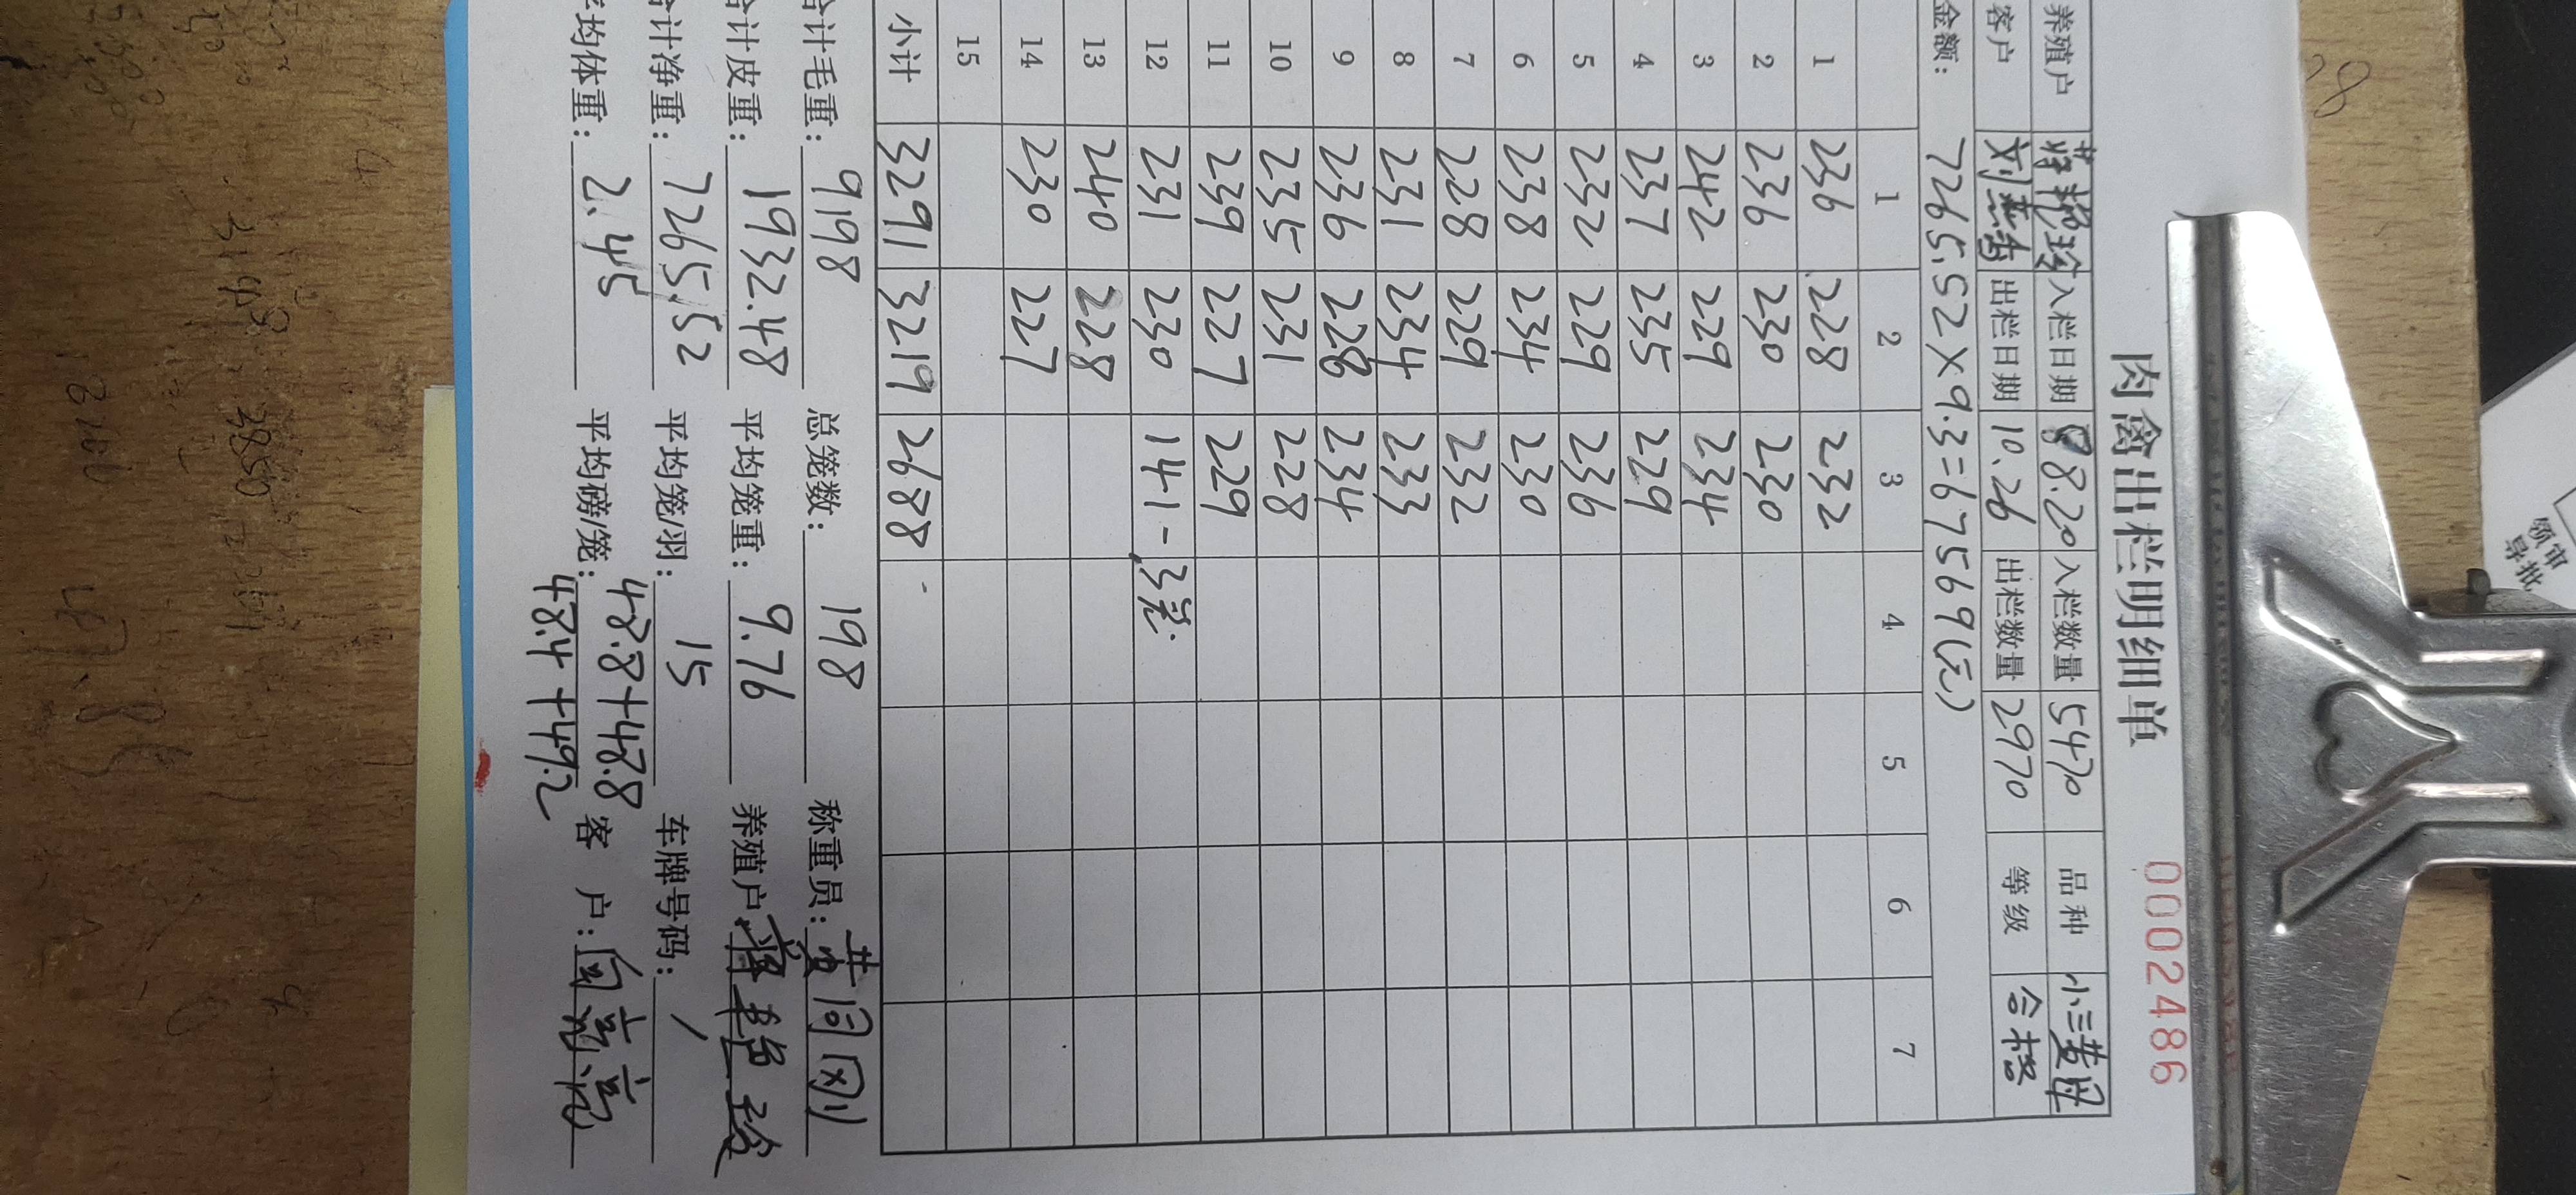 肉禽出栏明细单 0002486
养殖户 蒋艳珍 入栏日期 8.20 入栏数量 5470 品种 小三黄母
客户 出栏日期 10.26 出栏数量 2970 等级 合格
金额: 7265.52×9.3=67569(元)
1 2 3 4 5 6 7
1 236 228 232
2 236 230 230
3 242 229 234
4 237 235 229
5 232 229 236
6 238 234 230
7 228 229 232
8 231 234 233
9 236 228 234
10 235 231 228
11 239 227 229
12 231 230 141-3笼.
13 240 228
14 230 227
15
小计 3291 3219 2688
合计毛重: 9198 总笼数: 198 称重员: 黄同刚
合计皮重: 1932.48 平均笼重: 9.76 养殖户: 蒋艳珍
合计净重: 7265.52 平均笼/羽: 15 车牌号码: /
平均体重: 2.45 平均磅/笼: 48.8+48.8 客 户:
48.4+49.2
领导
审批